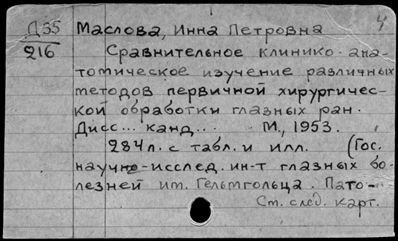 Д35 Маслова, Инна Петровна 4
216 Сравнительное клинико-ана-
томическое изучение различных
методов первичной хирургичес-
кой обработки глазных ран.
Дисс... канд... М., 1953.
284л. с табл. и илл. (Гос.
научно-исслед. ин-т глазных бо-
лезней им. Гельмгольца. Пато-
Ст. след. карт.